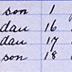 son 1
dau 16
dau 17
son 18